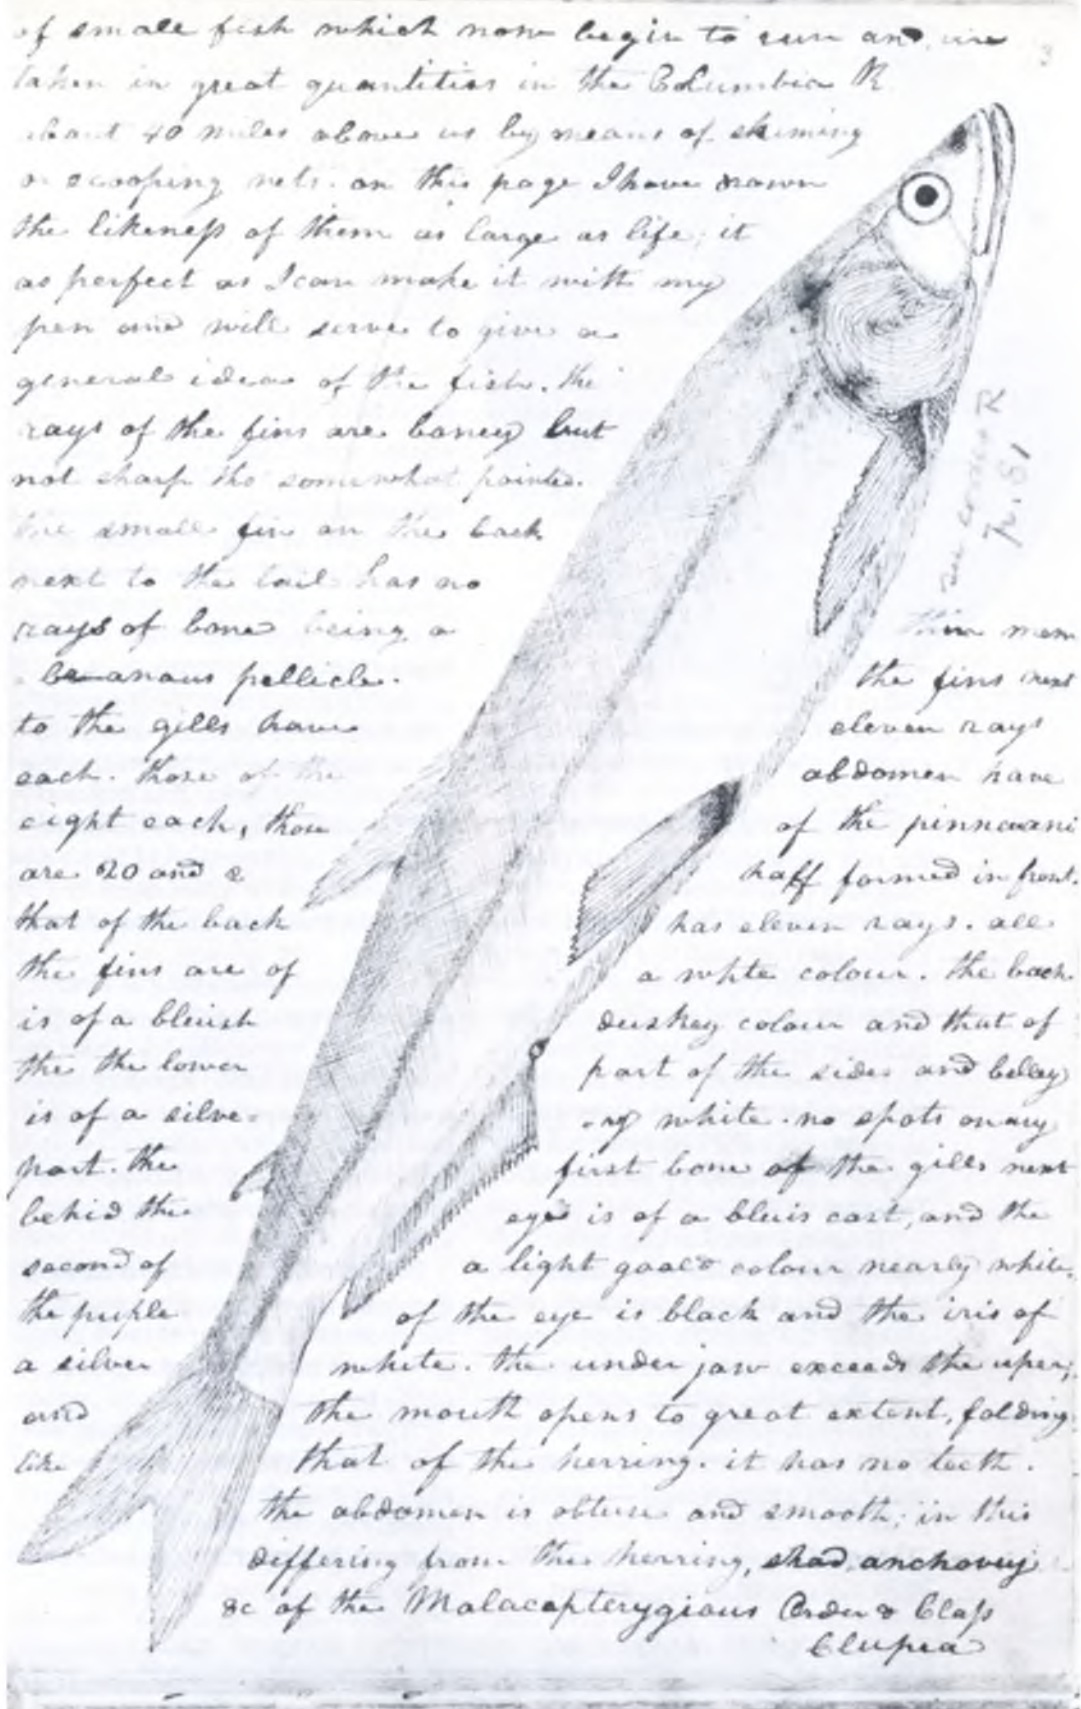 of small fish which now begin to run and are
taken in great quantities in the Columbia R.
about 40 miles above us by means of skiming
or scooping nets. on this page I have drawn
the likeness of them as large as life; it
as perfect as I can make it with my
pen and will serve to give a
general idea of the fish. the
rays of the fins are boney but
not sharp tho' somewhat pointed.
the small fin on the back
next to the tail has no
rays of bone being a thin mem
be anous pellicle. the fins next
to the gills have eleven rays
each. those of the abdomen have
eight each, those of the pinnaani
are 20 and 2 haff formed in front.
that of the back has eleven rays. all
the fins are of a white colour. the back
is of a bluish duskey colour and that of
the the lower part of the sides and belley
is of a silve- -ry white. no spots on any
part. the first bone of the gills next
behid the eye is of a bluis cast, and the
second of a light goald colour nearly white.
the puple of the eye is black and the iris of
a silver white. the under jaw exceeds the uper;
and the mouth opens to great extent, folding
like that of the herring. it has no teeth.
the abdomen is obtuse and smooth; in this
differing from the herring, shad, anchovey
&c of the Malacapterygious Order & Class
Clupea